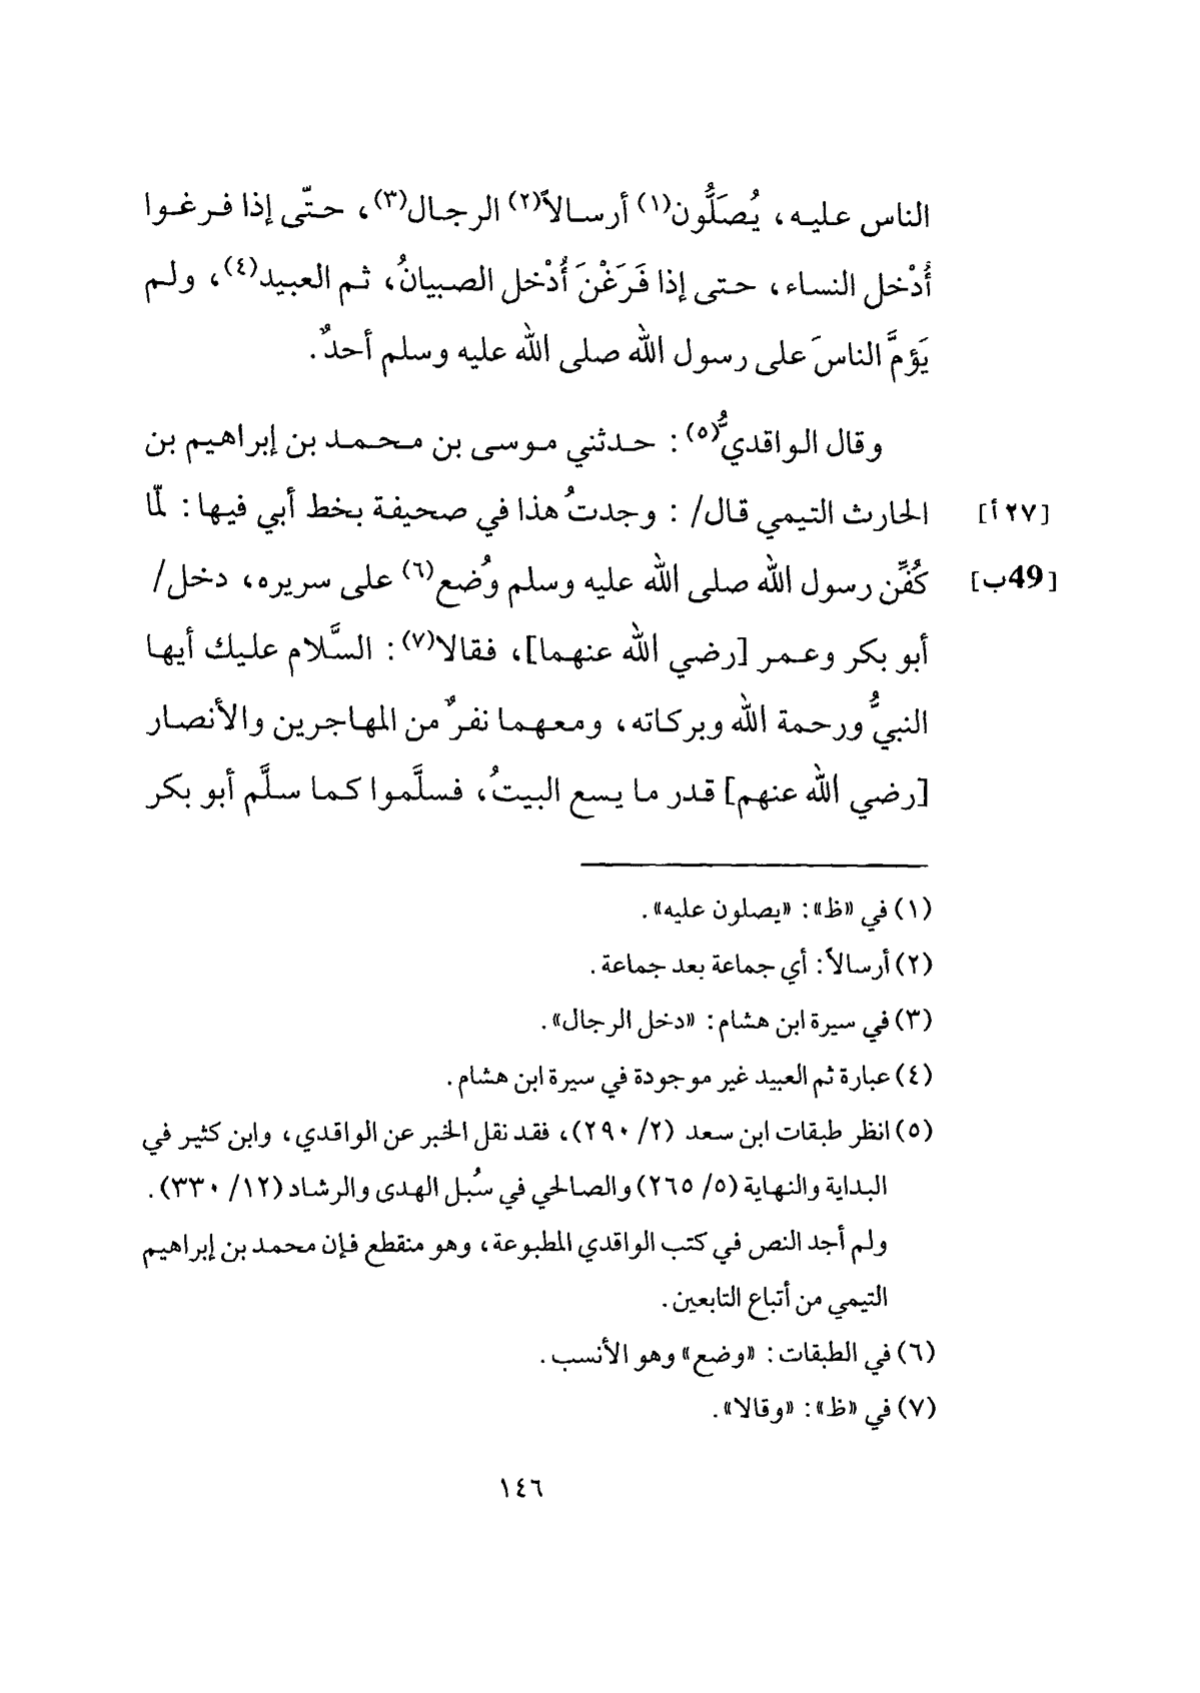 الناس عليه، يُصَلُّون(١) أرسالاً(٢) الرجال(٣)، حتّى إذا فرغوا
أُدْخل النساء، حتى إذا فَرَغْنَ أُدْخل الصبيانُ، ثم العبيد(٤)، ولم
يَؤمَّ الناسَ على رسول الله صلى الله عليه وسلم أحدٌ.
وقال الواقديُّ(٥): حدثني موسى بن محمد بن إبراهيم بن
الحارث التيمي قال/ : وجدتُ هذا في صحيفة بخط أبي فيها: لمّا [٢٧أ]
كُفِّن رسول الله صلى الله عليه وسلم وُضع(٦) على سريره، دخل/ [49ب]
أبو بكر وعمر [رضي الله عنهما]، فقالا(٧): السَّلام عليك أيها
النبيُّ ورحمة الله وبركاته، ومعهما نفرٌ من المهاجرين والأنصار
[رضي الله عنهم] قدر ما يسع البيتُ، فسلَّموا كما سلَّم أبو بكر
(١) في «ظ»: «يصلون عليه».
(٢) أرسالاً: أي جماعة بعد جماعة.
(٣) في سيرة ابن هشام: «دخل الرجال».
(٤) عبارة ثم العبيد غير موجودة في سيرة ابن هشام.
(٥) انظر طبقات ابن سعد (٢/ ٢٩٠)، فقد نقل الخبر عن الواقدي، وابن كثير في
البداية والنهاية (٥/ ٢٦٥) والصالحي في سُبل الهدى والرشاد (١٢/ ٣٣٠).
ولم أجد النص في كتب الواقدي المطبوعة، وهو منقطع فإن محمد بن إبراهيم
التيمي من أتباع التابعين.
(٦) في الطبقات: «وضع» وهو الأنسب.
(٧) في «ظ»: «وقالا».
١٤٦